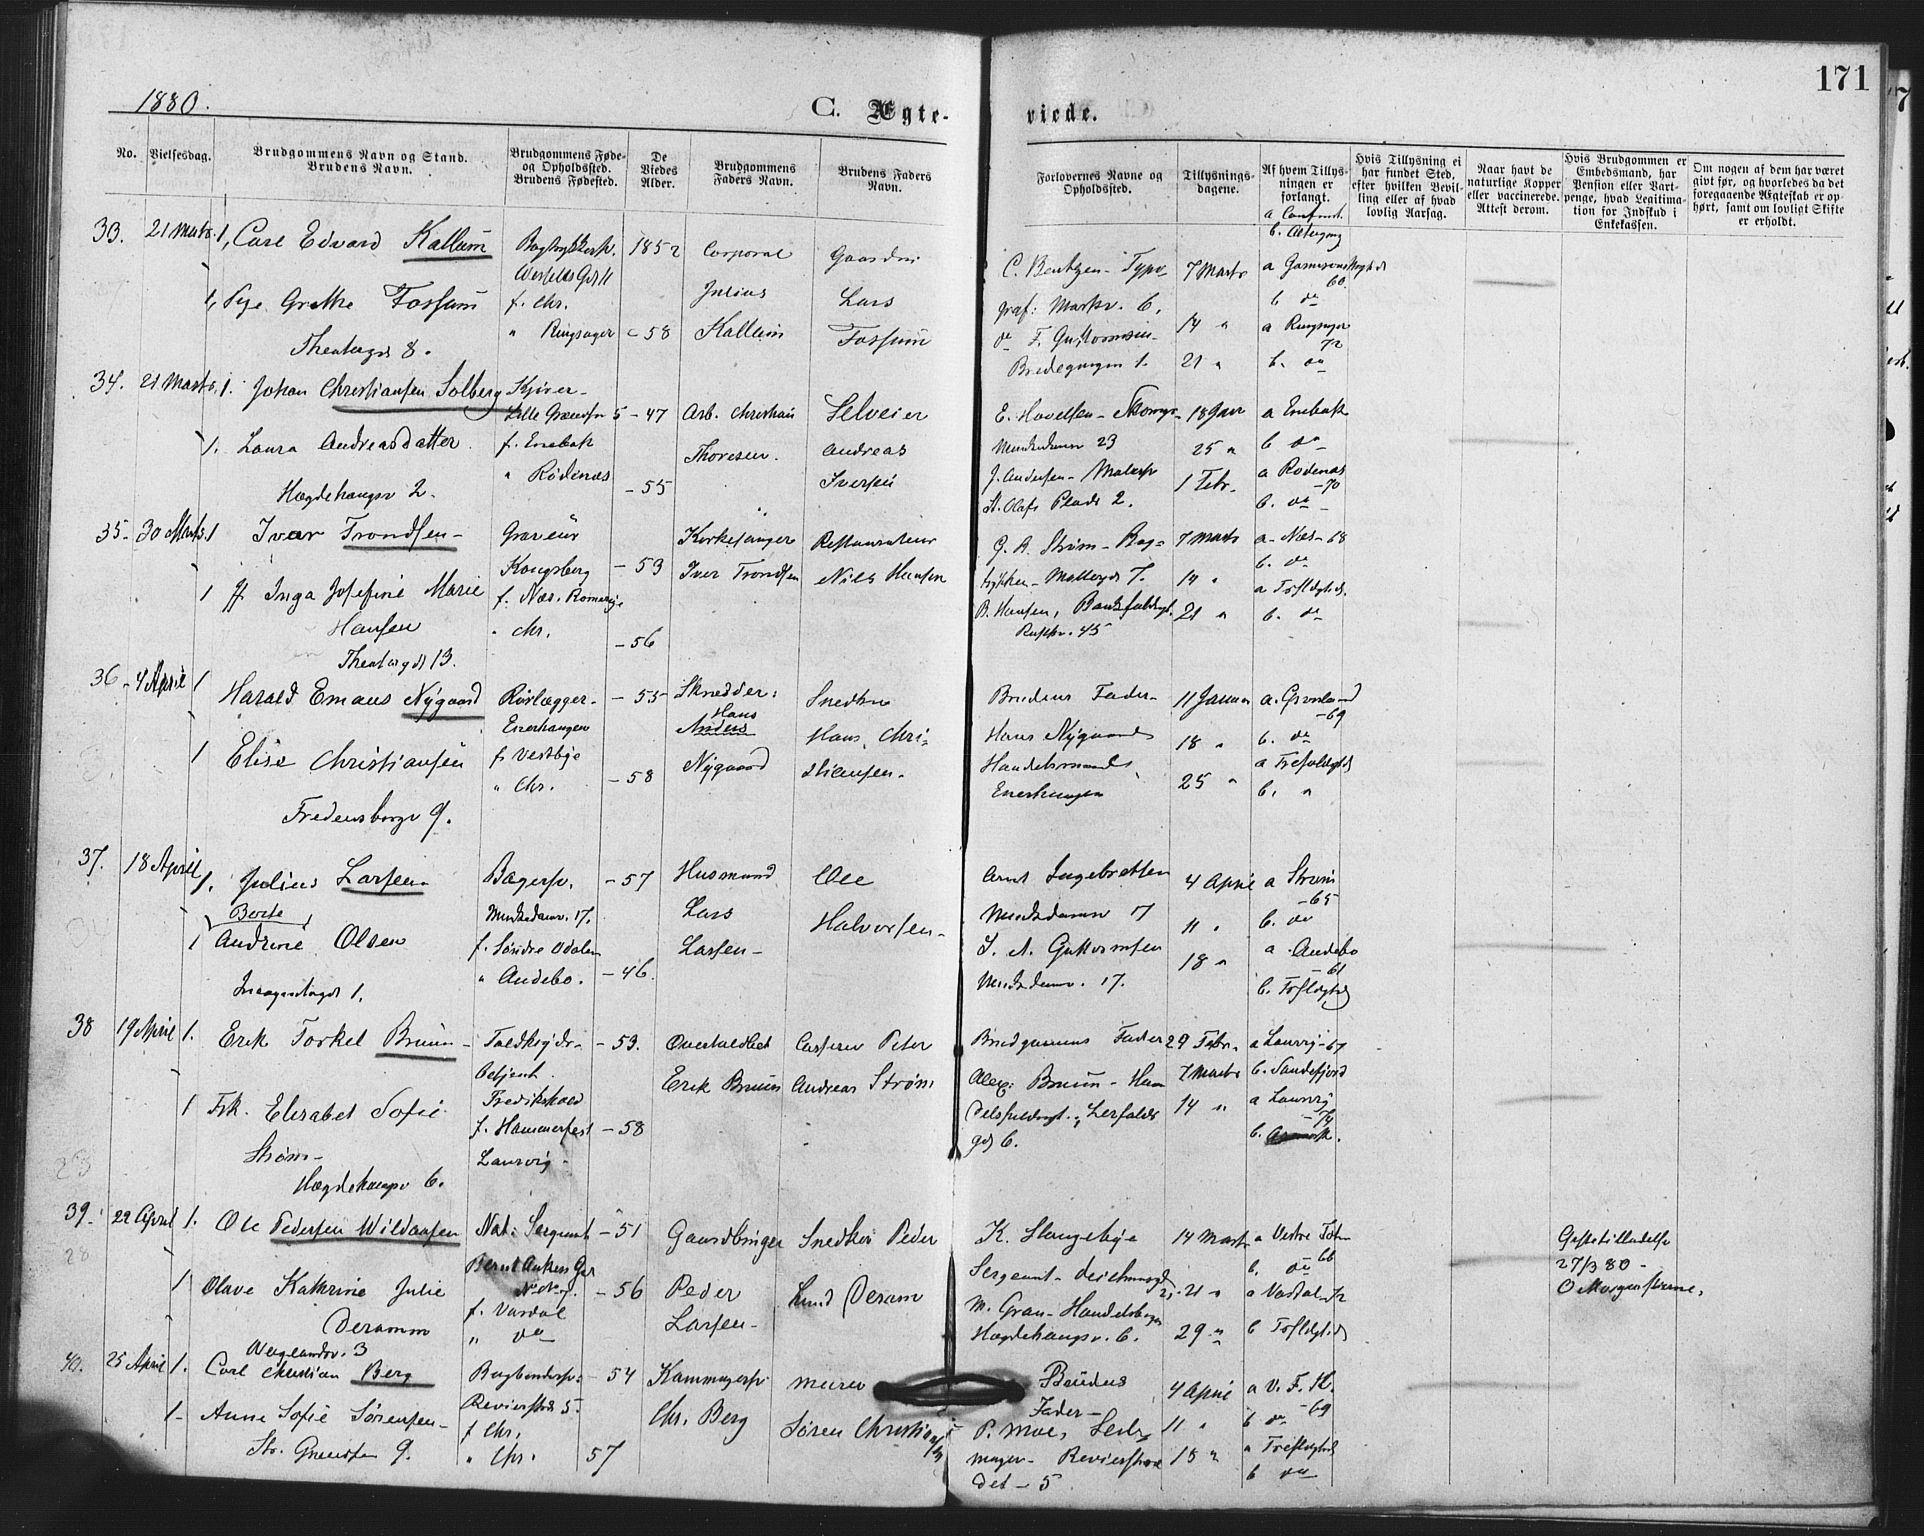 1880.
C. Ægte-
viede.
171
No.
Vielsesdag.
Brudgommens Navn og Stand.
Brudens Navn.
Brudgommens Føde-
og Opholdssted.
Brudens Fødested.
De
Viedes
Alder.
Brudgommens
Faders Navn.
Brudens Faders
Navn.
Forlovernes Navne og
Opholdssted.
Tillysnings-
dagene.
Af hvem Tillys-
ningen er
forlangt.
Hvis Tillysning ei
har fundet Sted,
efter hvilken Bevil-
ling eller af hvad
lovlig Aarsag.
Naar havt de
naturlige Kopper
eller vaccinerede.
Attest derom.
Hvis Brudgommen er
Embedsmand, har
Pension eller Vart-
penge, hvad Legitima-
tion for Indskud i
Enkekassen.
Om nogen af dem har været
givt før, og hvorledes da det
foregaaende Ægteskab er op-
hørt, samt om lovligt Skifte
er erholdt.
a Confirmt.
b. Altergang
33. 21 Marts 1, Carl Edvard Kallum 1852 Corporal Gaardm
C. Bentzen - Typo 7 Marts a Garnisons
66
f. Chr. Julius Lars
1, Pige Grethe Fossum
graf: Markv. 6. b do
" Ringsager - 58 Kallum Fossum
14 " a Ringsager
72
Theatergd 8.
Bredegangen 1. 21 " b. do
34. 21 Marts 1. Johan Christiansen Solberg
Lille Grændsen 5 - 47 Arb. Christian Selveier
E. Havelsen - 18 Janr a Enebak
1. Laura Andreasdatter. f. Enebak Thoresen. Andreas
Munkedamm 23 25 " b do
" Rødenæs - 55 Iversen
J. Andersen - Malersv 1 Febr. a Rødenæs
-70
Hægdehaugsv 2.
St. Olafs Plads 2. b. do
35 - 30 Marts 1 Ivar Trondsen - Graveur
Kongsberg - 53 Kirkesanger Restaurateur
Iver Trondsen Nils Hansen
G. A. Strøm - Bog= 7 Marts a - Næs - 68
b. do
trykker - Møllergd 7. 14 " a Trefldghd.
1 Jf. Inga Josefine Marie f. Næs. Romerige
Hansen " Chr. - 56
B. Hansen, 21 " b. do
Theatergd 13.
Ruskv. 45
36 - 4 April 1 Harald Emaus Nygaard Rørlægger - - 55 Skrædder: Snedker
Hans
Anders
Enerhaugen Hans Chri=
Brudens Fader - 11 Januar a. Grønland
-69
1 Elise Christiansen f. Vestbye
" Chr. - 58 Nygaard stiansen.
Hans Nygaard 18 " b. do
Handelsmand, a Trefoldghd
Enerhaugen 25 " b. "
Fredensborgv 9.
37. 18 April 1. Julius Larsen Bagersv. - 57 Husmand Ole
Munkedamv. 17. Lars Halvorsen -
Arnt Ingebretsen 4 April a Strøm
-65
Munkedammv 17 11 " b. do
Borte
1 Andrine Olsen f. Søndre Odalen Larsen -
" Andebo. - 46.
S. A. Guttormsen a. Andebo
-61
Munkdamv. 17. 18 " b. Trefldghd
38 19 April 1. Erik Torkel Bruun - - 53. Casper Peter
Betjent. Erik Bruun Andreas Strøm
Brudgommens Fader 29 Febr. a Laurvig - 67
Alex: Bruun - Han 7 Marts b. Sandefjord
1 Frk. Elisabet Sofie Fredrikshald
f. Hammerfest - 58
delsfuldmgt., 14 " a Laurvig
-74
gd 6.
Strøm - Laurvig -
Hægdehaugsv 6.
39. 29 April 1. Ole Pedersen Wildaasen Nat: Sergeant - 51 Gaardbruger Snedker Peder
Bernt Ankers Gd
K. Slangebye 14 Marts a Vestre Toten
66
Sergeant - b. do
1 Olave Kathrine Julie - 56 Peder Lund Deramm
Deramm f. Vardal Larsen -
" do
21 " a Vardal - 72
M. Gran - Handelsborger
Hægdehaugsv. 6. 29 " b Trefldghd
Giftetilladelse
27/3 80 -
O Morgenstierne.
40. 25 April 1. Wergelandsv. 3
Carl Christian Berg - 54 Kammagersv Murer
Brudens 4 April a V. F. H.
-69
Revierstrd 5. Chr. Berg Søren Christians
Fader -
1 - Anne Sofie Sørensen - f Chr.
P. Moe, 11 " b do
St. Grændsen 9. " Chr. 57
mager - Revierstræ 18 " a Trefldghd
det - 5 b do